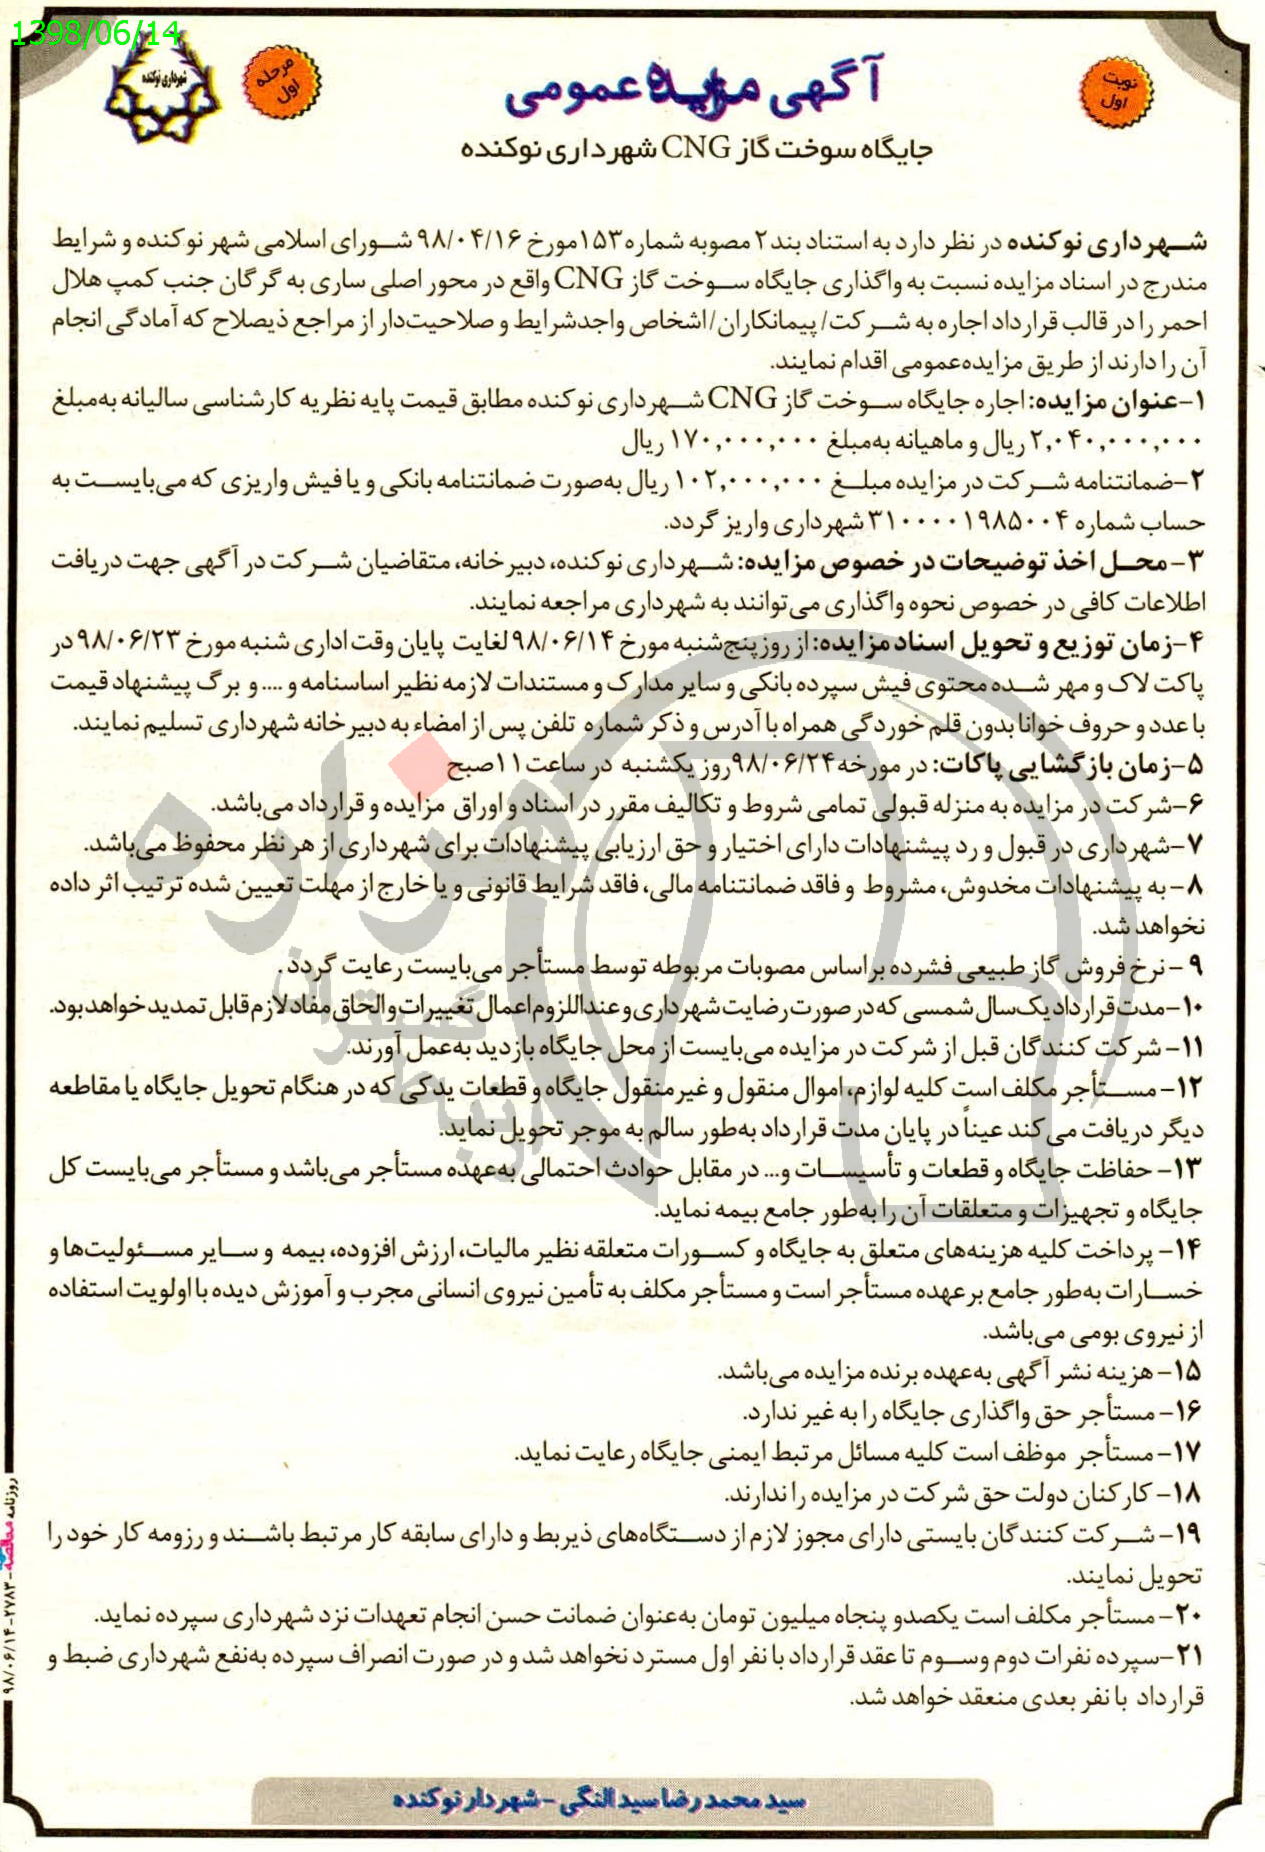 1398/06/14
شهرداری نوکنده
مرحله
اول
نوبت
اول
آگهی مزایده عمومی
جایگاه سوخت گاز CNG شهرداری نوکنده
شهرداری نوکنده در نظر دارد به استناد بند ۲ مصوبه شماره ۱۵۳ مورخ ۹۸/۰۴/۱۶ شورای اسلامی شهر نوکنده و شرایط
مندرج در اسناد مزایده نسبت به واگذاری جایگاه سوخت گاز CNG واقع در محور اصلی ساری به گرگان جنب کمپ هلال
احمر را در قالب قرارداد اجاره به شرکت/ پیمانکاران/اشخاص واجدشرایط و صلاحیت‌دار از مراجع ذیصلاح که آمادگی انجام
آن را دارند از طریق مزایده‌عمومی اقدام نمایند.
۱-عنوان مزایده: اجاره جایگاه سوخت گاز CNG شهرداری نوکنده مطابق قیمت پایه نظریه کارشناسی سالیانه به‌مبلغ
۲,۰۴۰,۰۰۰,۰۰۰ ریال و ماهیانه به‌مبلغ ۱۷۰,۰۰۰,۰۰۰ ریال
۲-ضمانتنامه شرکت در مزایده مبلغ ۱۰۲,۰۰۰,۰۰۰ ریال به‌صورت ضمانتنامه بانکی و یا فیش واریزی که می‌بایست به
حساب شماره ۳۱۰۰۰۰۱۹۸۵۰۰۴ شهرداری واریز گردد.
۳- محل اخذ توضیحات در خصوص مزایده: شهرداری نوکنده، دبیرخانه، متقاضیان شرکت در آگهی جهت دریافت
اطلاعات کافی در خصوص نحوه واگذاری می‌توانند به شهرداری مراجعه نمایند.
۴-زمان توزیع و تحویل اسناد مزایده: از روز پنج‌شنبه مورخ ۹۸/۰۶/۱۴ لغایت پایان وقت اداری شنبه مورخ ۹۸/۰۶/۲۳ در
پاکت لاک و مهر شده محتوی فیش سپرده بانکی و سایر مدارک و مستندات لازمه نظیر اساسنامه و .... و برگ پیشنهاد قیمت
با عدد و حروف خوانا بدون قلم خوردگی همراه با آدرس و ذکر شماره تلفن پس از امضاء به دبیرخانه شهرداری تسلیم نمایند.
۵-زمان بازگشایی پاکات: در مورخه ۹۸/۰۶/۲۴ روز یکشنبه در ساعت ۱۱ صبح
۶-شرکت در مزایده به منزله قبولی تمامی شروط و تکالیف مقرر در اسناد و اوراق مزایده و قرارداد می‌باشد.
۷-شهرداری در قبول و رد پیشنهادات دارای اختیار و حق ارزیابی پیشنهادات برای شهرداری از هر نظر محفوظ می‌باشد.
۸- به پیشنهادات مخدوش، مشروط و فاقد ضمانتنامه مالی، فاقد شرایط قانونی و یا خارج از مهلت تعیین شده ترتیب اثر داده
نخواهد شد.
۹ - نرخ فروش گاز طبیعی فشرده براساس مصوبات مربوطه توسط مستأجر می‌بایست رعایت گردد .
۱۰-مدت قرارداد یک‌سال شمسی که در صورت رضایت شهرداری و عنداللزوم اعمال تغییرات و الحاق مفاد لازم قابل تمدید خواهد بود.
۱۱- شرکت کنندگان قبل از شرکت در مزایده می‌بایست از محل جایگاه بازدید به‌عمل آورند.
۱۲- مستأجر مکلف است کلیه لوازم، اموال منقول و غیرمنقول جایگاه و قطعات یدکی که در هنگام تحویل جایگاه یا مقاطعه
دیگر دریافت می‌کند عیناً در پایان مدت قرارداد به‌طور سالم به موجر تحویل نماید.
۱۳- حفاظت جایگاه و قطعات و تأسیسات و... در مقابل حوادث احتمالی به‌عهده مستأجر می‌باشد و مستأجر می‌بایست کل
جایگاه و تجهیزات و متعلقات آن را به‌طور جامع بیمه نماید.
۱۴- پرداخت کلیه هزینه‌های متعلق به جایگاه و کسورات متعلقه نظیر مالیات، ارزش افزوده، بیمه و سایر مسئولیت‌ها و
خسارات به‌طور جامع برعهده مستأجر است و مستأجر مکلف به تأمین نیروی انسانی مجرب و آموزش دیده با اولویت استفاده
از نیروی بومی می‌باشد.
۱۵- هزینه نشر آگهی به‌عهده برنده مزایده می‌باشد.
۱۶- مستأجر حق واگذاری جایگاه را به غیر ندارد.
۱۷- مستأجر موظف است کلیه مسائل مرتبط ایمنی جایگاه رعایت نماید.
۱۸- کارکنان دولت حق شرکت در مزایده را ندارند.
۱۹- شرکت کنندگان بایستی دارای مجوز لازم از دستگاه‌های ذیربط و دارای سابقه کار مرتبط باشند و رزومه کار خود را
تحویل نمایند.
۲۰- مستأجر مکلف است یکصدو پنجاه میلیون تومان به‌عنوان ضمانت حسن انجام تعهدات نزد شهرداری سپرده نماید.
۲۱-سپرده نفرات دوم وسوم تا عقد قرارداد با نفر اول مسترد نخواهد شد و در صورت انصراف سپرده به‌نفع شهرداری ضبط و
قرارداد با نفر بعدی منعقد خواهد شد.
سید محمد رضا سید النگی - شهردار نوکنده
روزنامه مناقصه - ۲۷۸۳-۹۸/۰۶/۱۴
هزاره